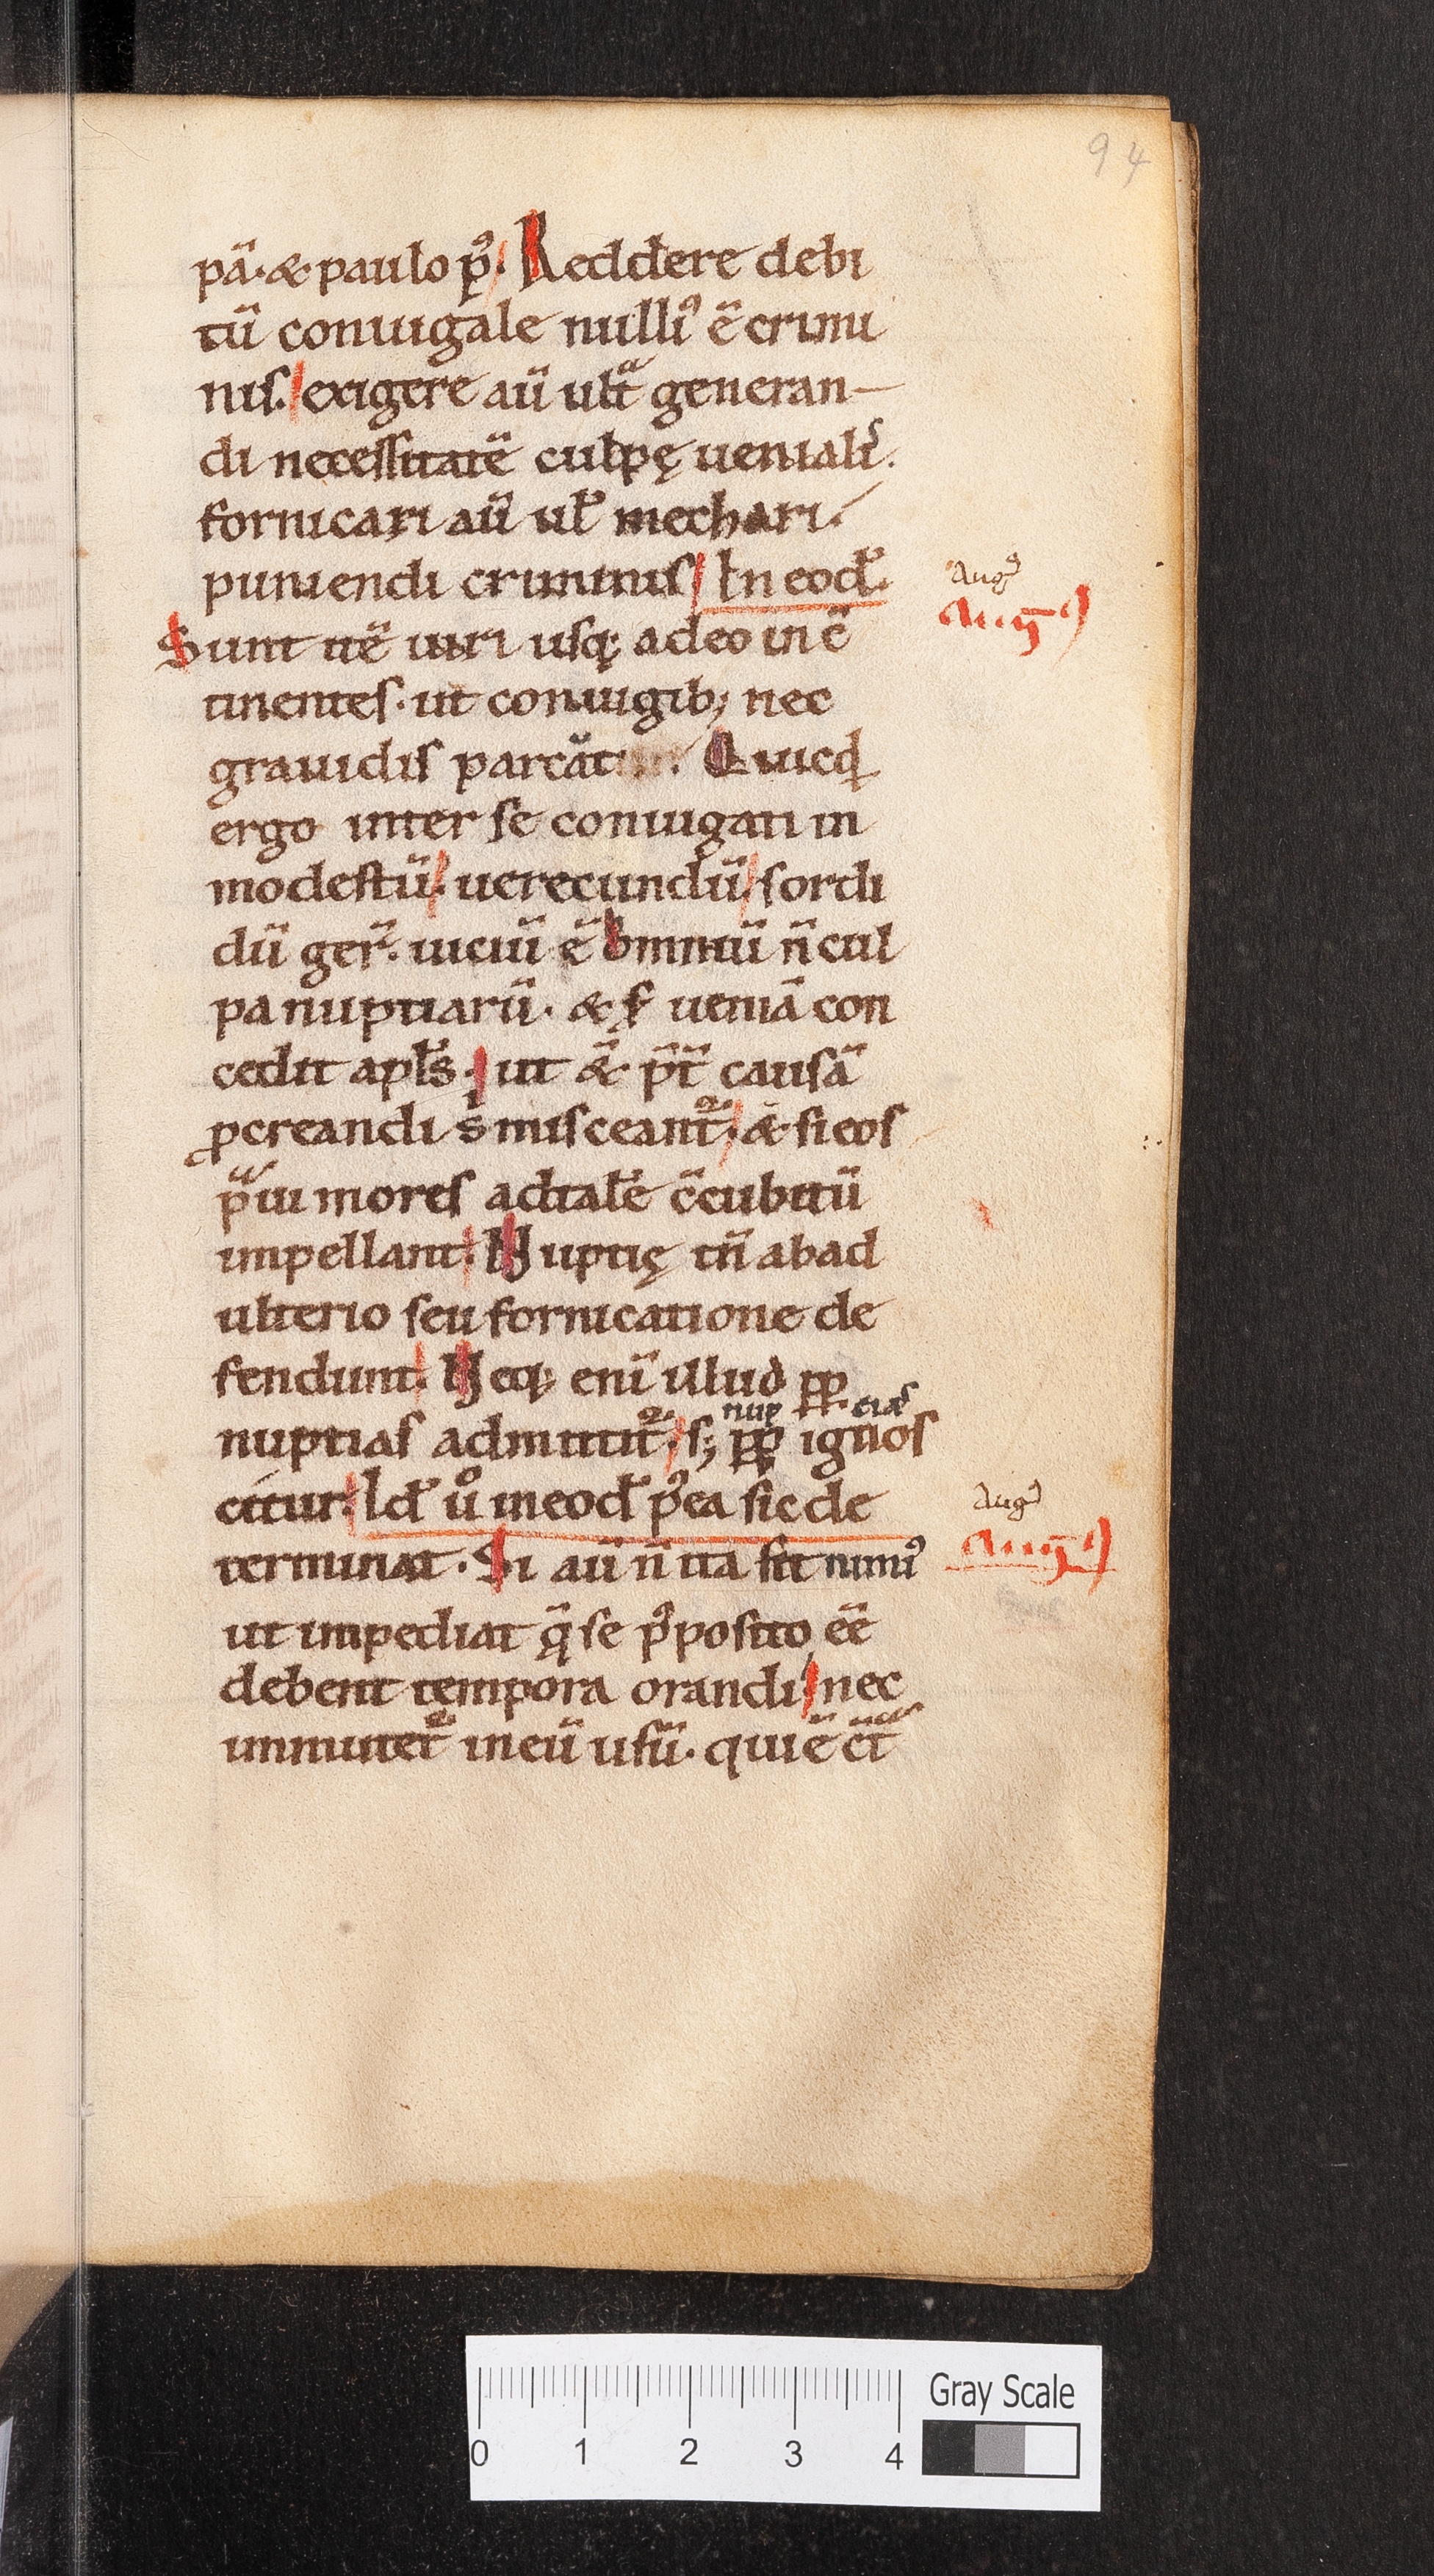 94
pā. & paulo p᷒. Reddere debi
tū coniugale nulli᷒ ē crimi
nis. exigere aū ult̄ᵃ generan—
di necessitatē culpę uenialiˢ.
fornicari aū ul̄ mechari.
puniendi criminis In eod̄.
Aug᷒
Aug̅᷒
Sunt nē uiri usq; adeo in ē
tinentes. ut coniugib; nec
grauidis parcāt . Quicq̣
ergo inter se coniugati in
modestū. uerecundū. sordi
dū ger᷑. uiciū ē ominū n̄ cul
pa nuptiarū. & s̄ ueniā con
cedit apl̄s. ut &̄ p̄t̄ causā
ꝓcreandi s̄ misceant᷑. & si eos
pᵃui mores ad tal̄e c̄cubitū
impellant. Nuptię tn̄ ab ad
ulterio seu fornicatione de
fendunt. Neq; enī illud pp̄
nup cias
nuptias admittit᷑. s; pp̄ ignos
citur. Id̄ ů in eod̄ p᷒ea sic de
Aug᷒
Aug̅᷒
terminat. Si aū n̄ ita sit nimi᷒
ut impediat q̄ se p᷒posito eē
debent tempora orandi. nec
inmutet᷑ in eū usū. qui ē c̄t̄ᵃ
0 1 2 3 4
Gray Scale